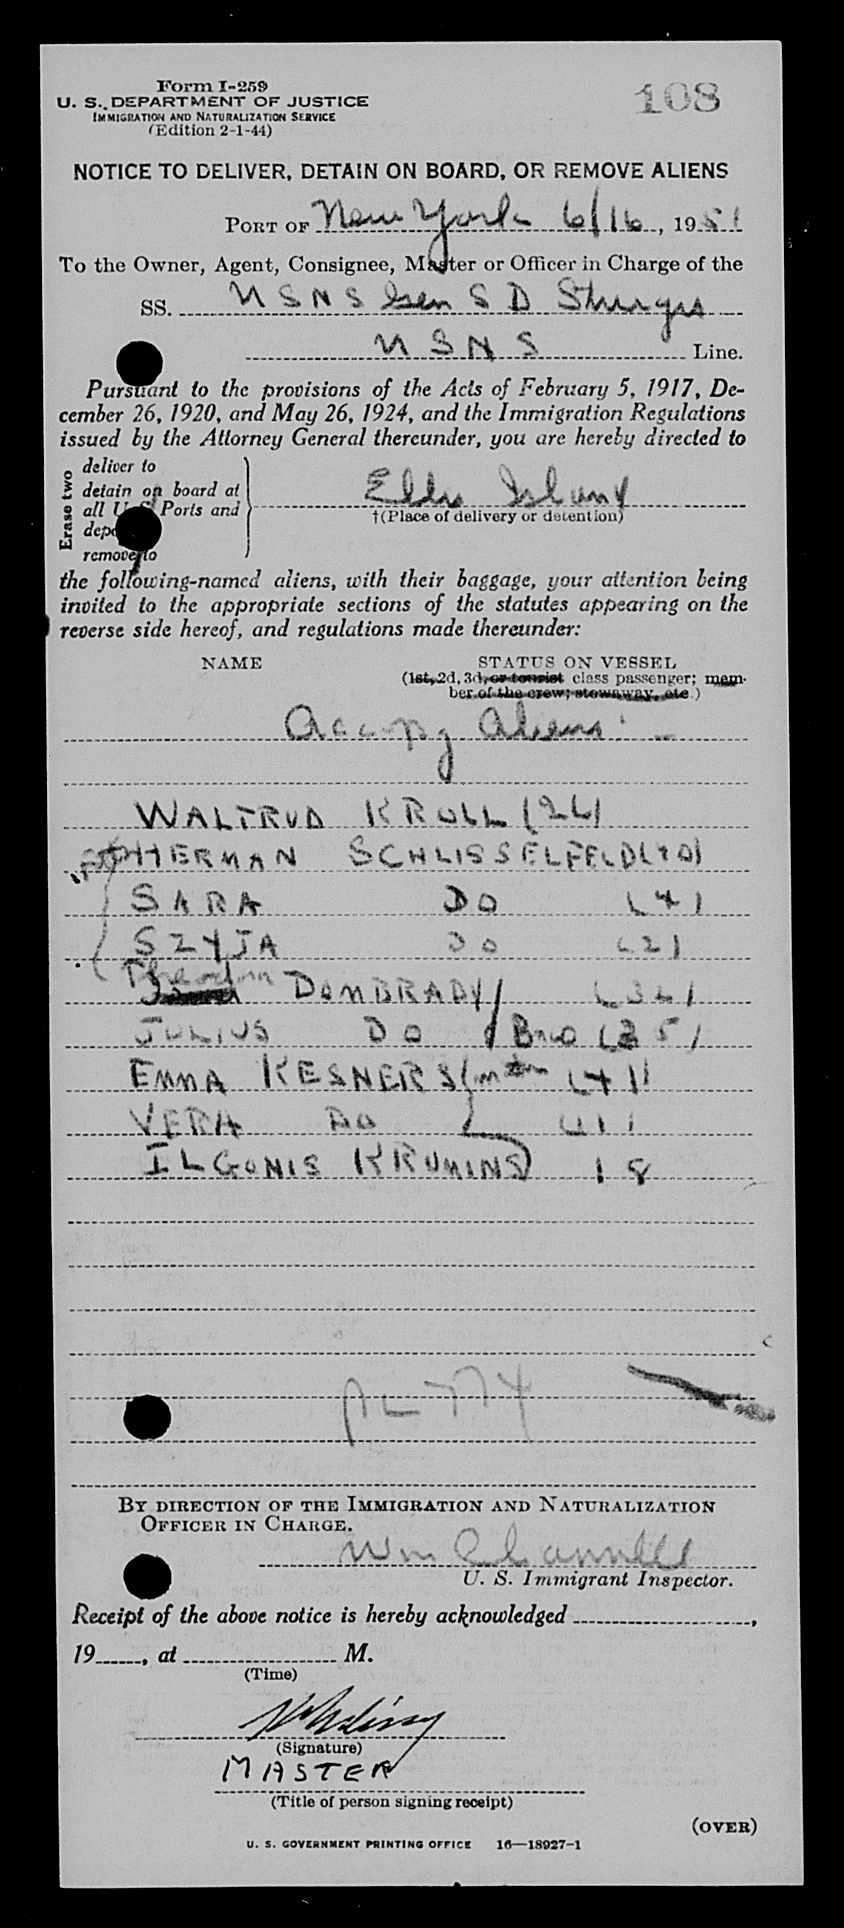 Form I-259
108
U. S. DEPARTMENT OF JUSTICE
IMMIGRATION AND NATURALIZATION SERVICE
(Edition 2-1-44)
NOTICE TO DELIVER, DETAIN ON BOARD, OR REMOVE ALIENS
PORT OF New York 6/16, 1951
To the Owner, Agent, Consignee, Master or Officer in Charge of the
SS. USNS Gen S D Sturgis
USNS Line.
Pursuant to the provisions of the Acts of February 5, 1917, De-
cember 26, 1920, and May 26, 1924, and the Immigration Regulations
issued by the Attorney General thereunder, you are hereby directed to
Erase two
deliver to
detain on board at
all U S Ports and
remove to
Ellis Island
†(Place of delivery or detention)
the following-named aliens, with their baggage, your attention being
invited to the appropriate sections of the statutes appearing on the
reverse side hereof, and regulations made thereunder:
NAME STATUS ON VESSEL
(1st, 2d, 3d, or tourist class passenger; mem-
ber of the crew; stowaway, etc.)
Accpy Aliens
WALTRUD KROLL (26)
HERMAN SCHLISSELFELD (40)
SARA DO (4)
SZYJA DO (2)
DOMBRADY (36)
JULIUS DO Bro (35)
EMMA KESNERS (41)
VERA DO (11)
ILGONIS KRUMINS 18
774
BY DIRECTION OF THE IMMIGRATION AND NATURALIZATION
OFFICER IN CHARGE.
Wm
U. S. Immigrant Inspector.
Receipt of the above notice is hereby acknowledged ,
19 , at M.
(Time)
(Signature)
MASTER
(Title of person signing receipt)
(OVER)
U. S. GOVERNMENT PRINTING OFFICE 16—18927-1